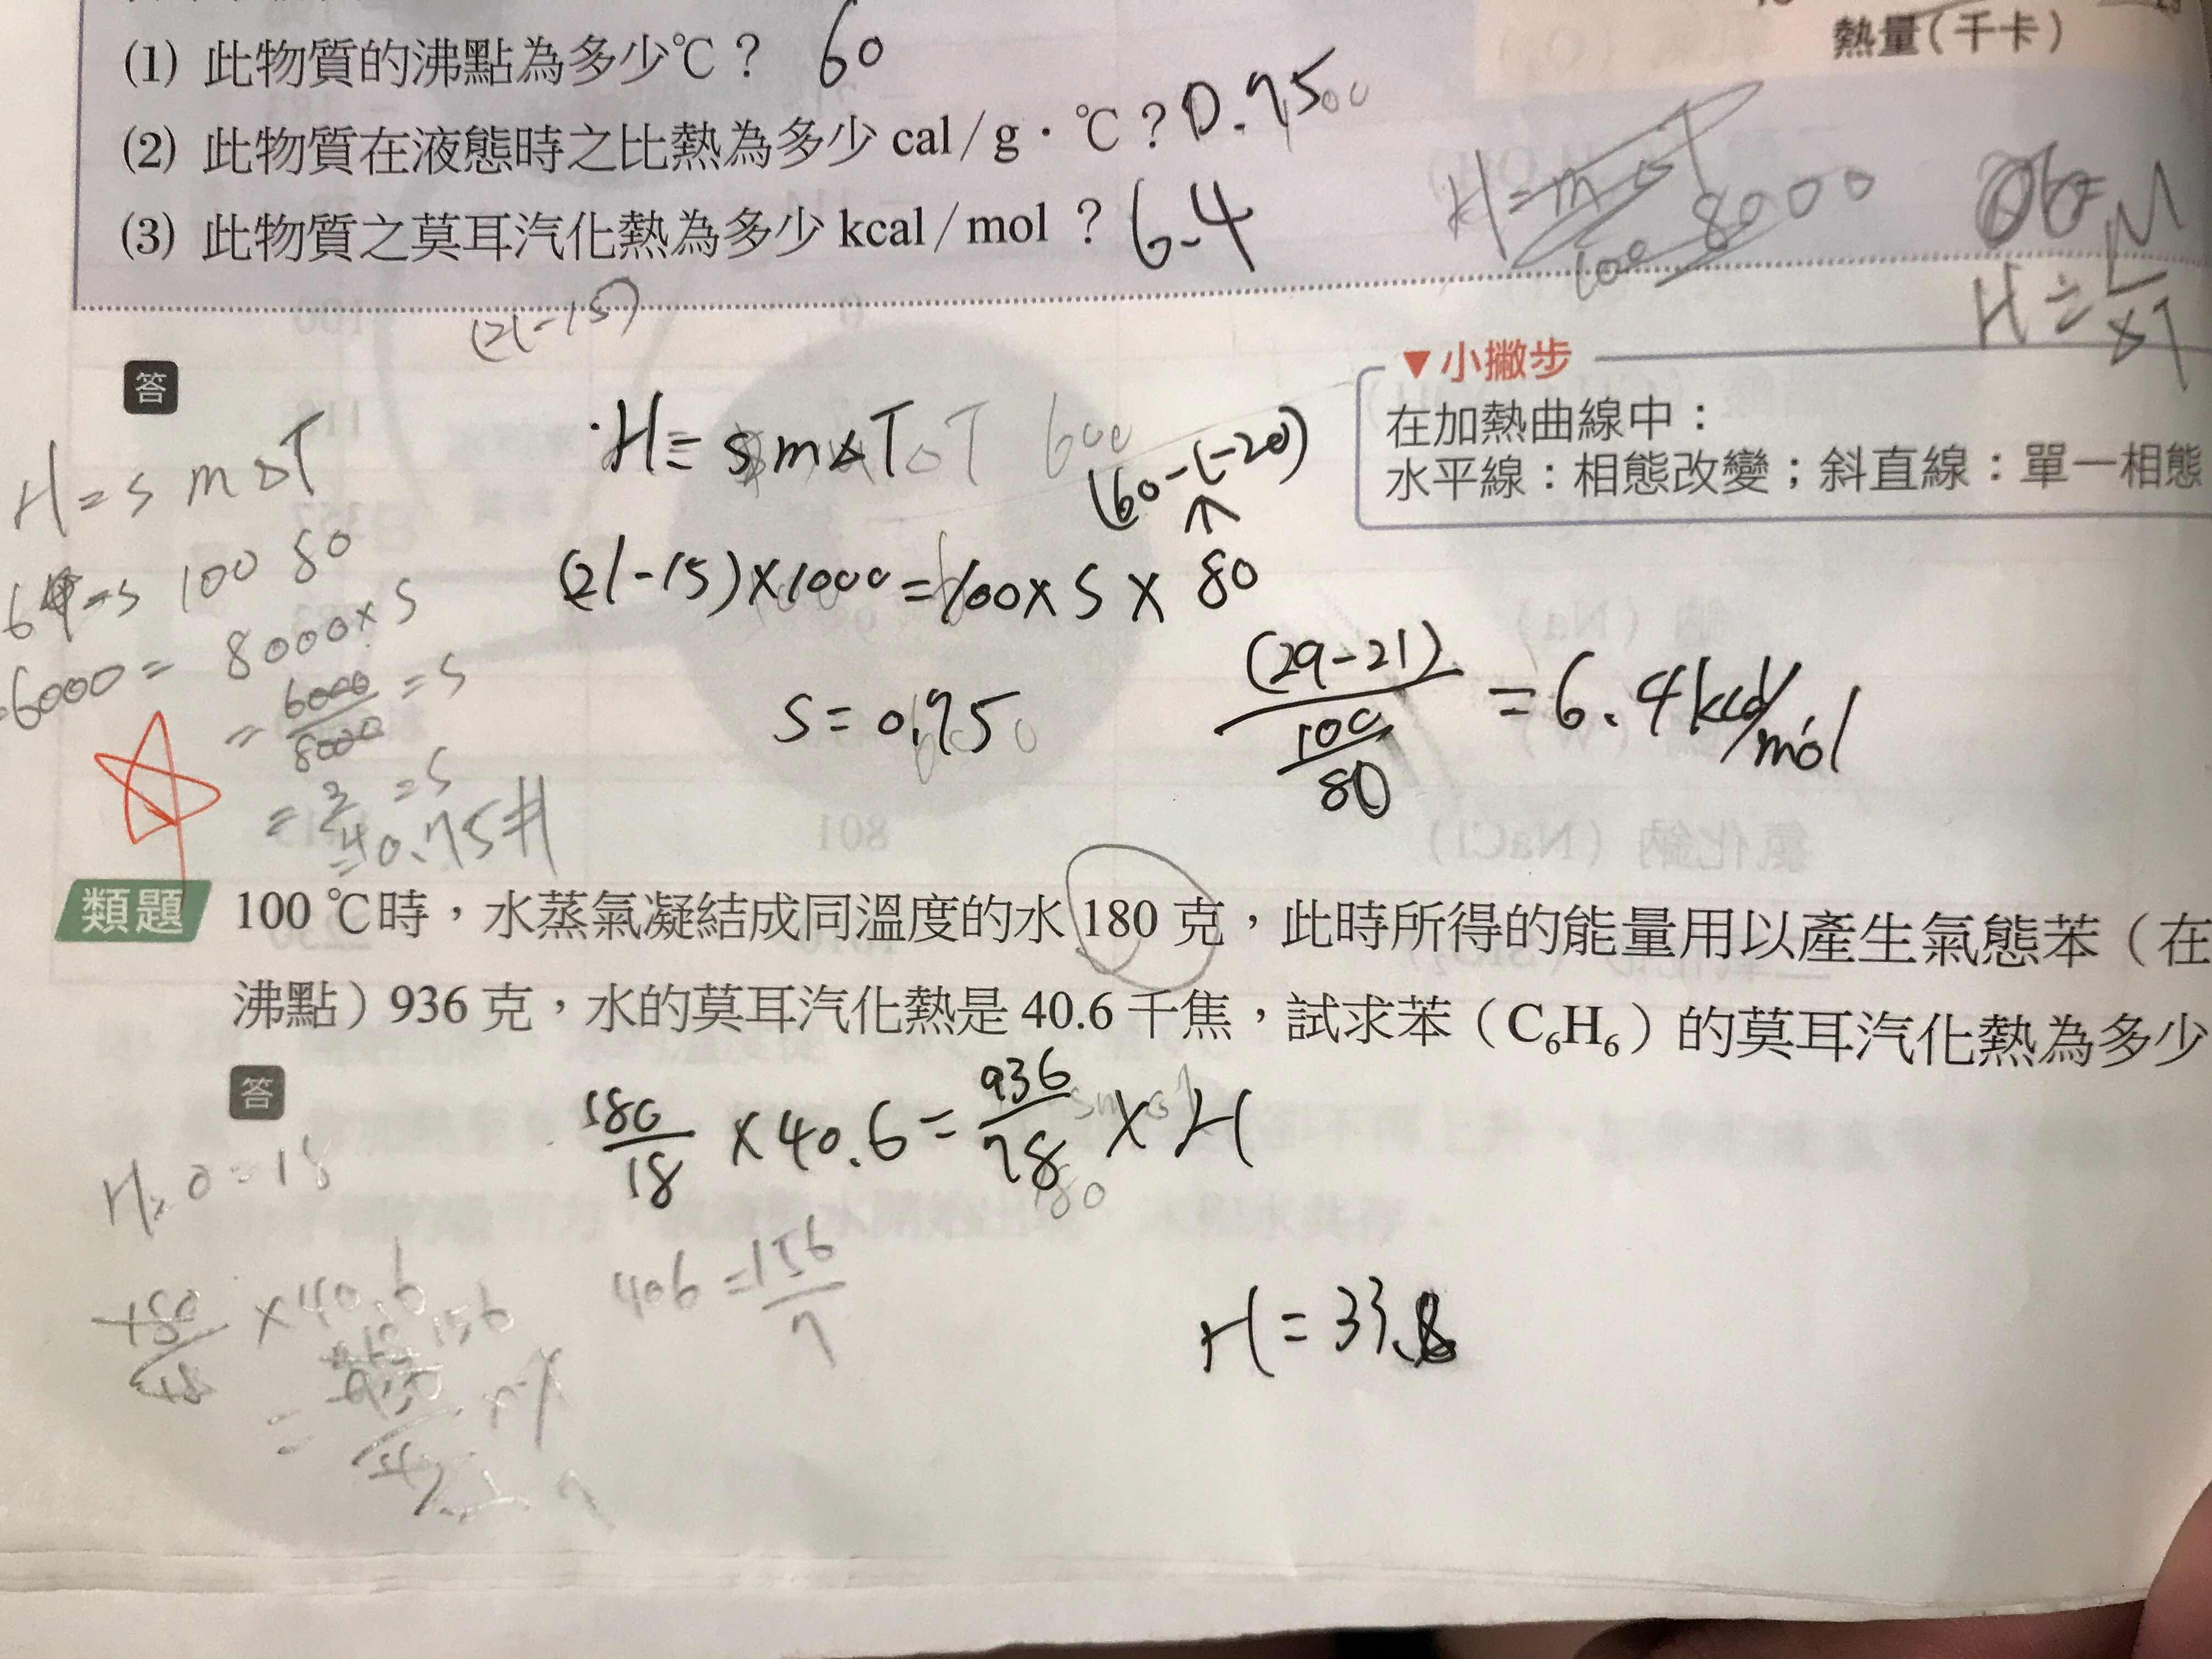 熱量(千卡)
(1) 此物質的沸點為多少℃? 60
(2) 此物質在液態時之比熱為多少 cal/g·℃? 0.75
(3) 此物質之莫耳汽化熱為多少 kcal/mol ? 6.4
8000
100
(21-15)
▼小撇步
在加熱曲線中:
水平線:相態改變;斜直線:單一相態
答
H = s m ΔT
100 80
6000 = 8000 × S
= 6000/8000 = S
0.75#
H = s m ΔT
(60-(-20))
↑
(21-15)×1000=100×S×80
S = 0.75
(29-21)/(100/80) = 6.4 kcal/mol
類題 100 ℃時,水蒸氣凝結成同溫度的水 180 克,此時所得的能量用以產生氣態苯(在
沸點)936 克,水的莫耳汽化熱是 40.6 千焦,試求苯(C₆H₆)的莫耳汽化熱為多少
答
180/18 × 40.6 = 936/78 × H
H₂O = 18
180/18 × 40.6
406 = 156
H = 33.8